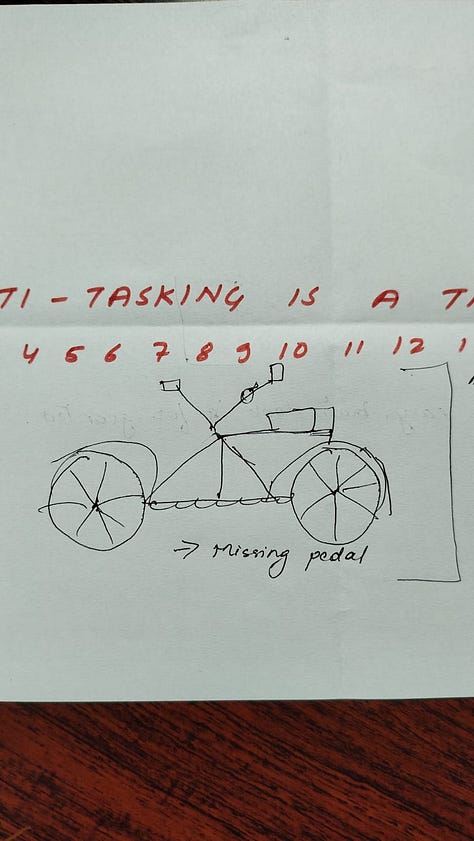 TI - TASKING IS A T
4 5 6 7 8 9 10 11 12 1
→ Missing pedal